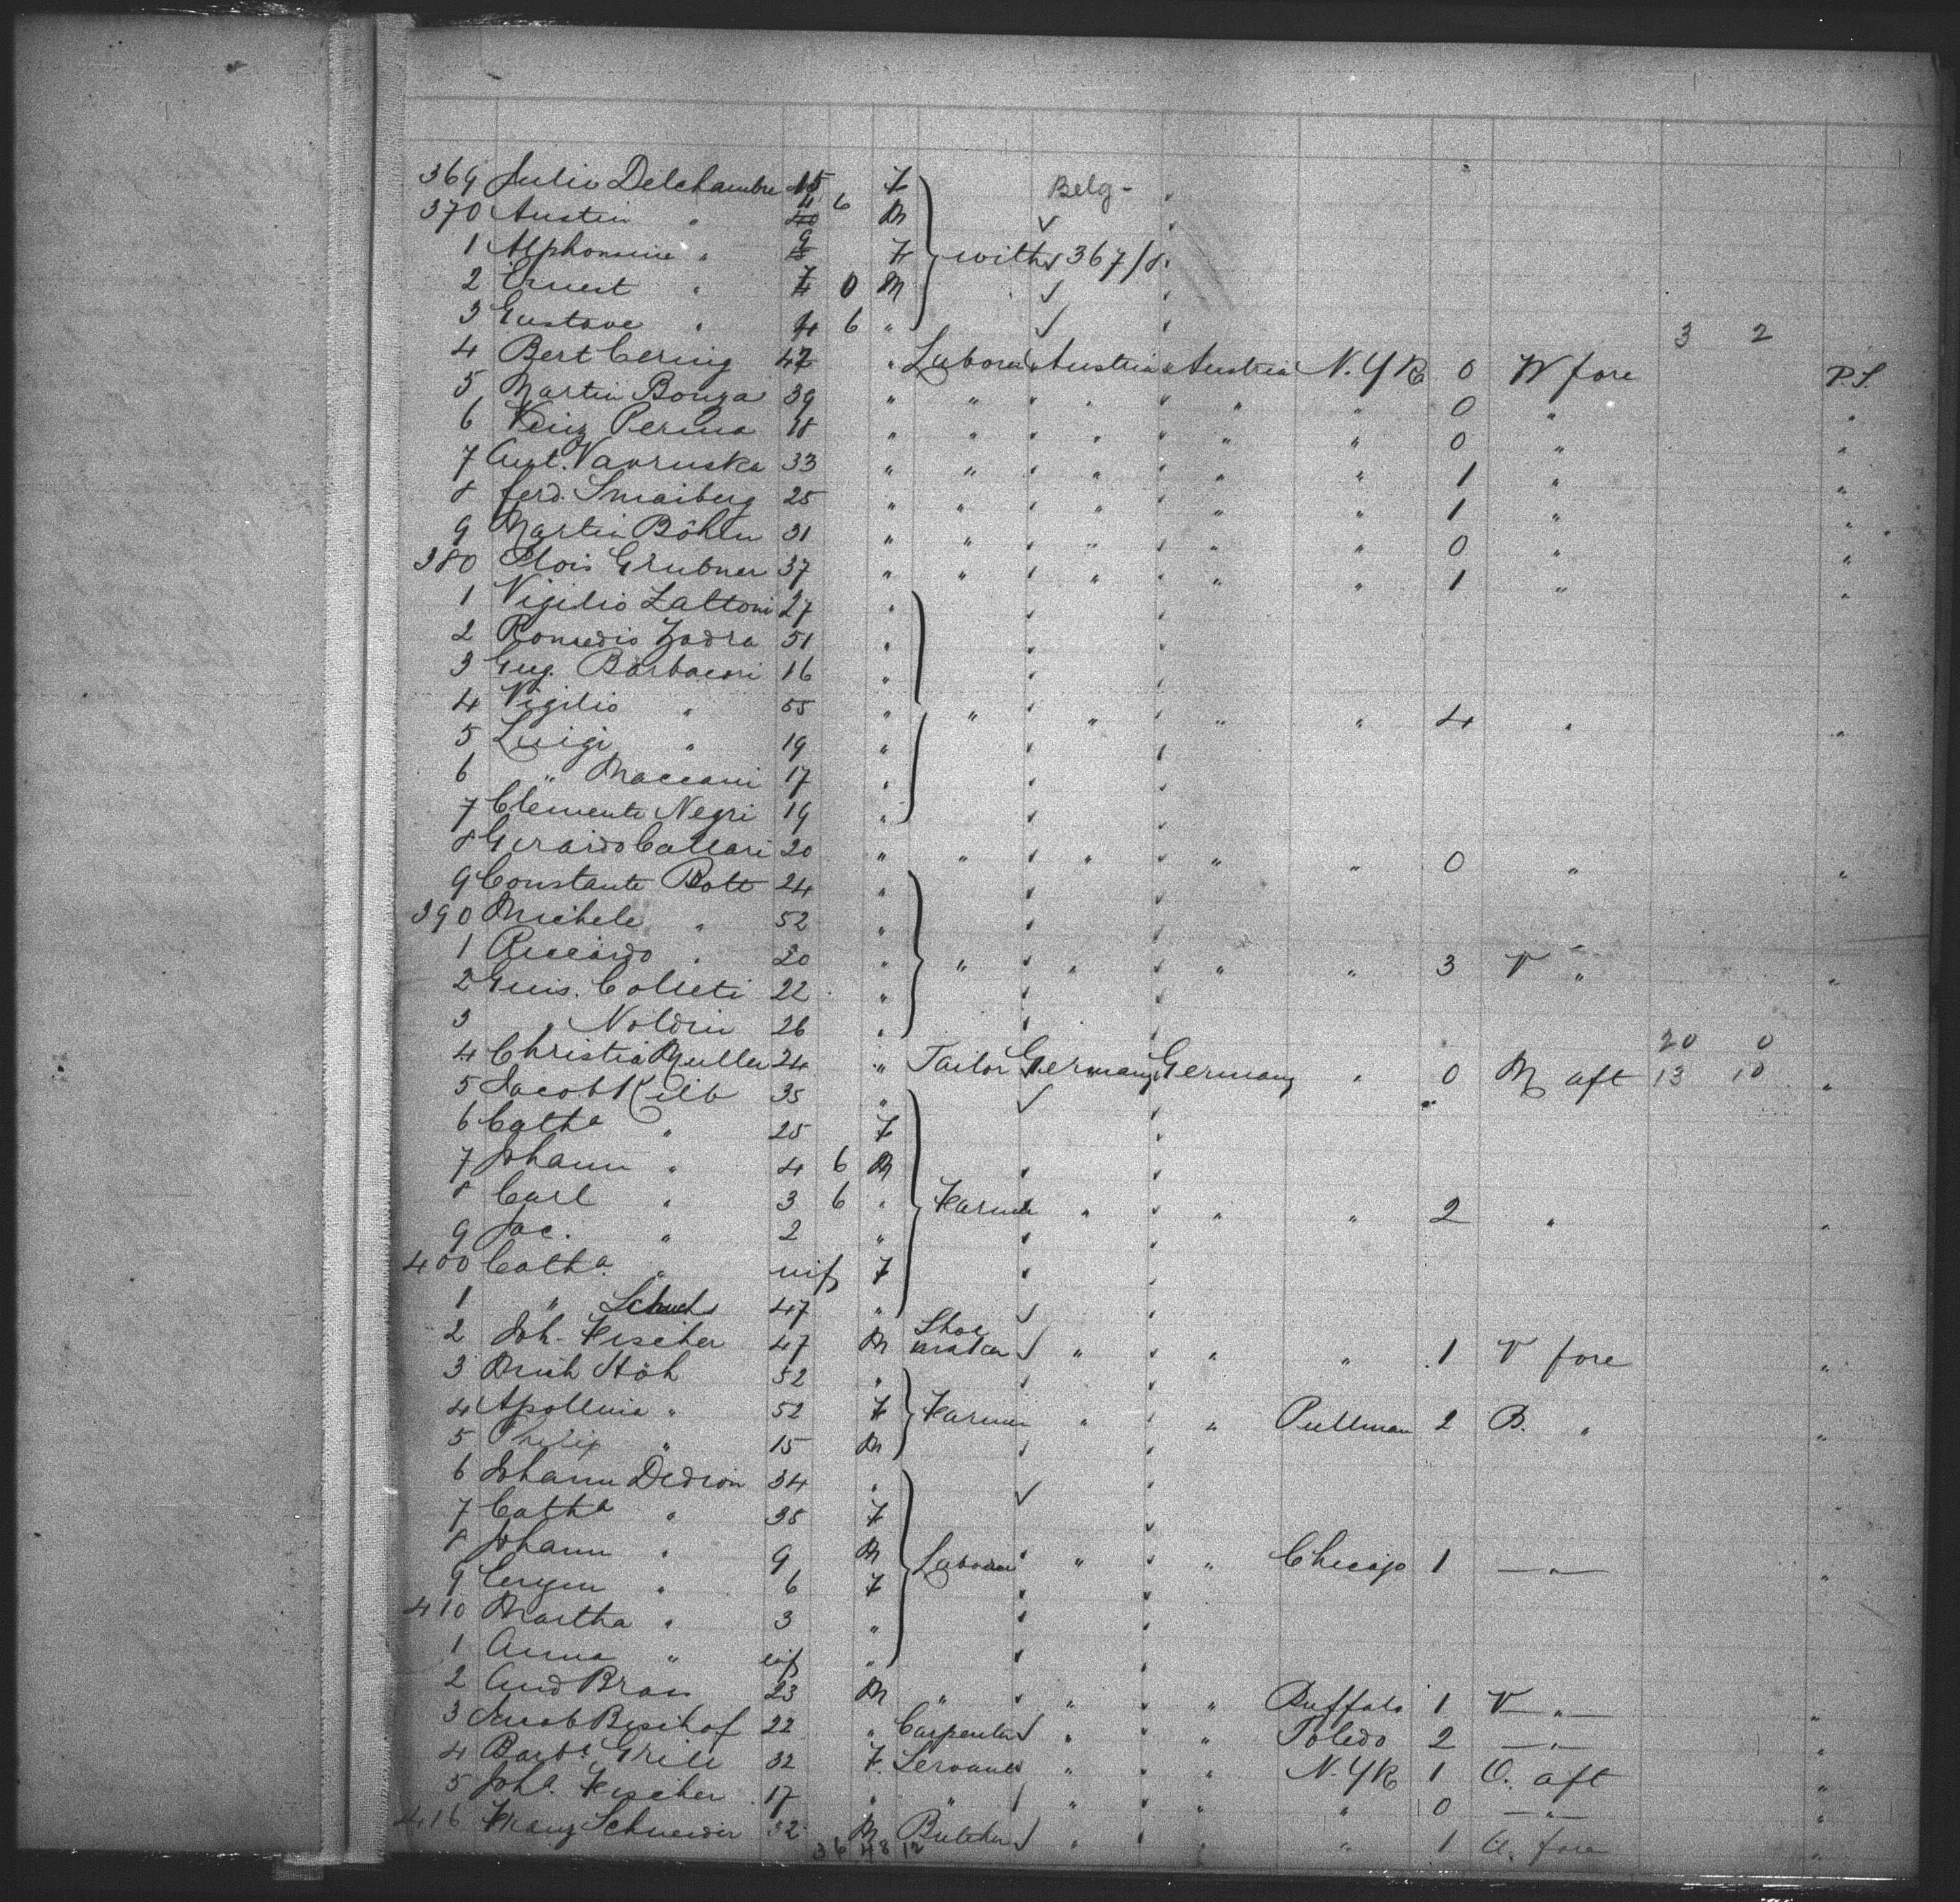 369 Julie Delchambre 15 F Belg -
370 Austin " 4 6 M
1 Alphonsine " 9 F with 367/8.
2 Ernest " 7 0 M
3 Gustave " 4 6 " 3 2
4 Bert Cering 42 " Laborer Austria Austria N. Yk 0 W fore P.S.
5 Martin Bouza 39 " " " " " 0 " "
6 Perina 18 " " " " " 0 " "
7 Ant. Vavruska 33 " " " " " 1 " "
8 Ferd. Smaiberg 25 " " " " " 1 " "
9 Martin Böhm 31 " " " " " 0 " "
380 Alois Grubner 37 " " " " " 1 " "
1 Vigilio Zattoni 27 "
2 Romedio Zadra 51 "
3 Eug. Barbacovi 16 "
4 Vigilio " 55 " " " " " 4 " "
5 Luigi " 19 "
6 " Maccani 17 "
7 Clemente Negri 19 "
8 Gerardo Callari 20 " " " " " 0 " "
9 Constante Bott 24 "
390 Michele " 52 "
1 Riccardo " 20 " " " " " 3 V " "
2 Guis. Colleti 22 "
3 " Noldin 26 " 20 0
4 Christia Muller 24 " Tailor Germany Germany " 0 M aft 13 10 "
5 Jacob Keib 35 "
6 Cath.a " 25 F
7 Johann " 4 6 M
8 Carl " 3 6 " Farmer " " " 2 " "
9 Jac. " 2 "
400 Cath.a " inf F
1 " Schuch 47 "
2 Joh. Fischer 47 M Shoe maker " " " 1 V fore "
3 Mich Höh 52 "
4 Apollina " 52 F Farmer " " Pullman 2 B. " "
5 Philip " 15 M
6 Johann Dedion 34 "
7 Cath.a " 35 F
8 Johann " 9 M Laborer " " Chicago 1 — " — "
9 " 6 F
410 Martha " 3 "
1 Anna " inf "
2 And Bran 23 M " " " Buffalo 1 V — " — "
3 Jacob Bischof 22 " Carpenter " " Toledo 2 — " — "
4 Barb.a Grill 32 F. Servant " " N. Yk 1 O. aft "
5 Joh.a Fischer 17 " " " " " 0 — " — "
416 Franz Schneider 32 M Butcher " " " 1 fore "
36 48 12